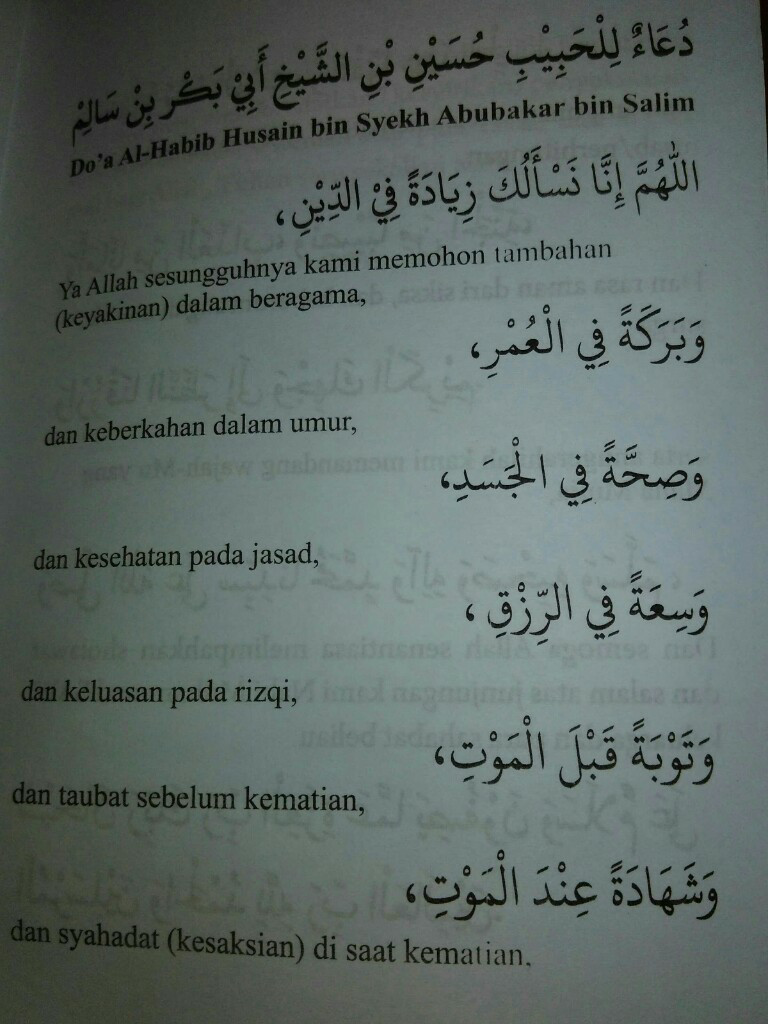 دُعَاءٌ لِلْحَبِيْبِ حُسَيْنِ بْنِ الشَّيْخِ أَبِيْ بَكْر بِنْ سَالِمْ
Do'a Al-Habib Husain bin Syekh Abubakar bin Salim
اللّٰهُمَّ إِنَّا نَسْأَلُكَ زِيَادَةً فِيْ الدِّيْنِ،
Ya Allah sesungguhnya kami memohon tambahan
(keyakinan) dalam beragama,
وَبَرَكَةً فِي الْعُمْرِ،
dan keberkahan dalam umur,
وَصِحَّةً فِي الْجَسَدِ،
dan kesehatan pada jasad,
وَسِعَةً فِي الرِّزْقِ،
dan keluasan pada rizqi,
وَتَوْبَةً قَبْلَ الْمَوْتِ،
dan taubat sebelum kematian,
وَشَهَادَةً عِنْدَ الْمَوْتِ،
dan syahadat (kesaksian) di saat kematian.